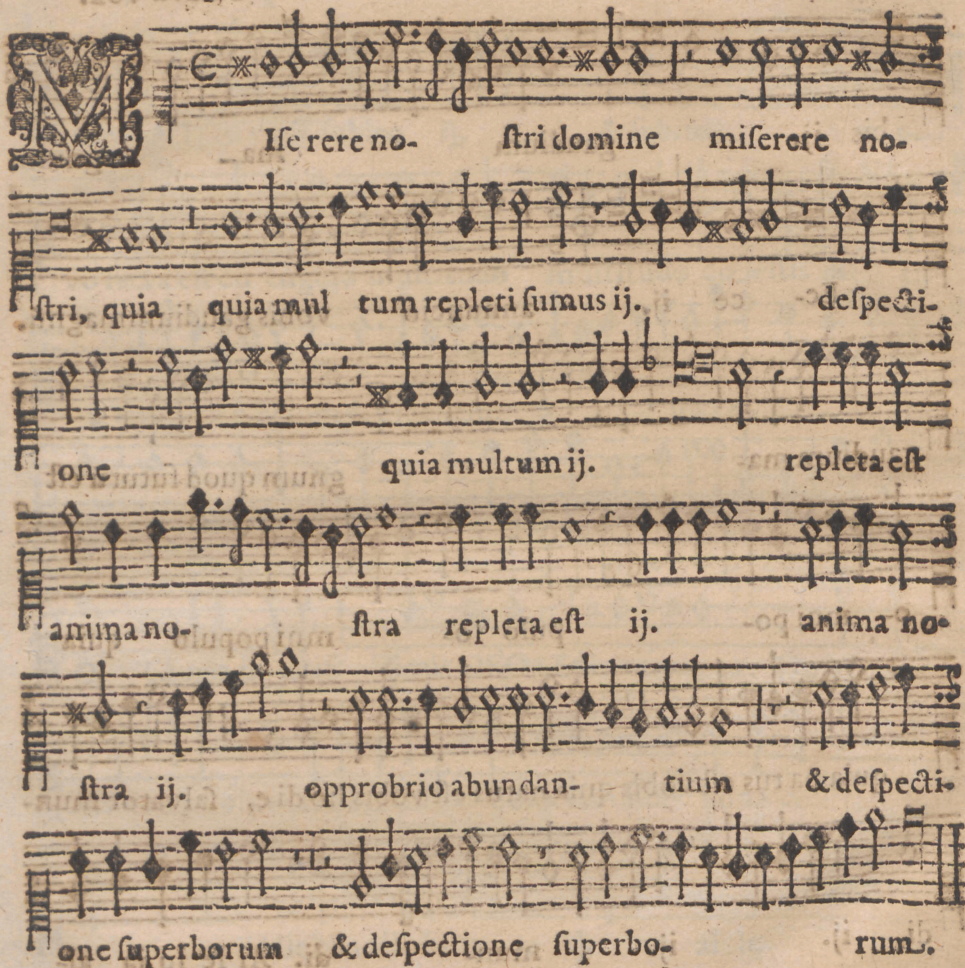 MIſe rere no- ſtri domine miſerere no-
ſtri, quia quia mul tum repleti ſumus ij. deſpecti-
one quia multum ij. repleta eſt
anima no- ſtra repleta eſt ij. anima no-
ſtra ij. opprobrio abundan- tium & deſpecti-
one ſuperborum & deſpectione ſuperbo- rum.